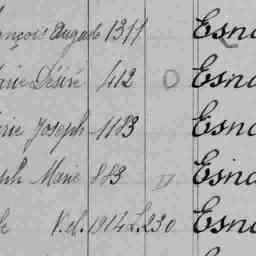 ançois Auguste 1311 Esna
Marie Désiré 412 Esna
rie Joseph 1183 Esna
eph Marie 883 Esna
Vel. 1914 L.230 Esna